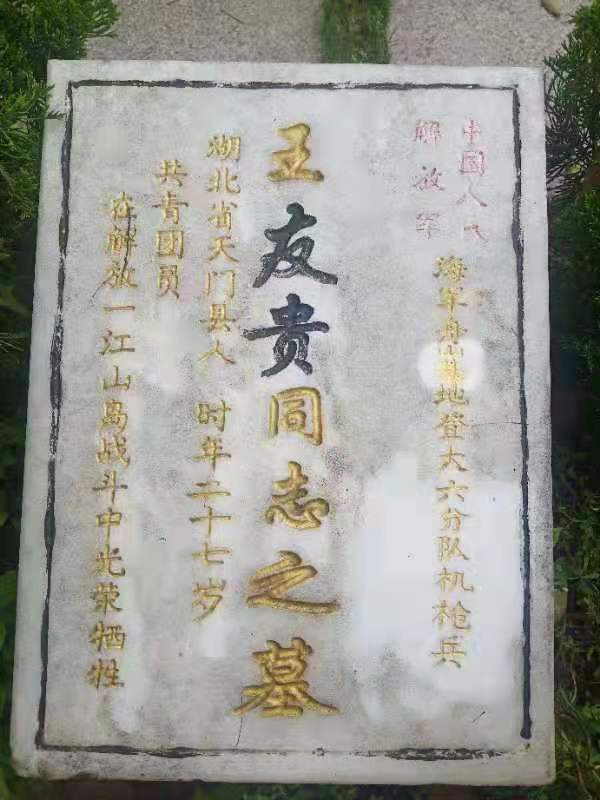 中国人民
解放军
海军舟山基地登大六分队机枪兵
王友贵同志之墓
湖北省天门县人 时年二十七岁
共青团员
在解放一江山岛战斗中光荣牺牲